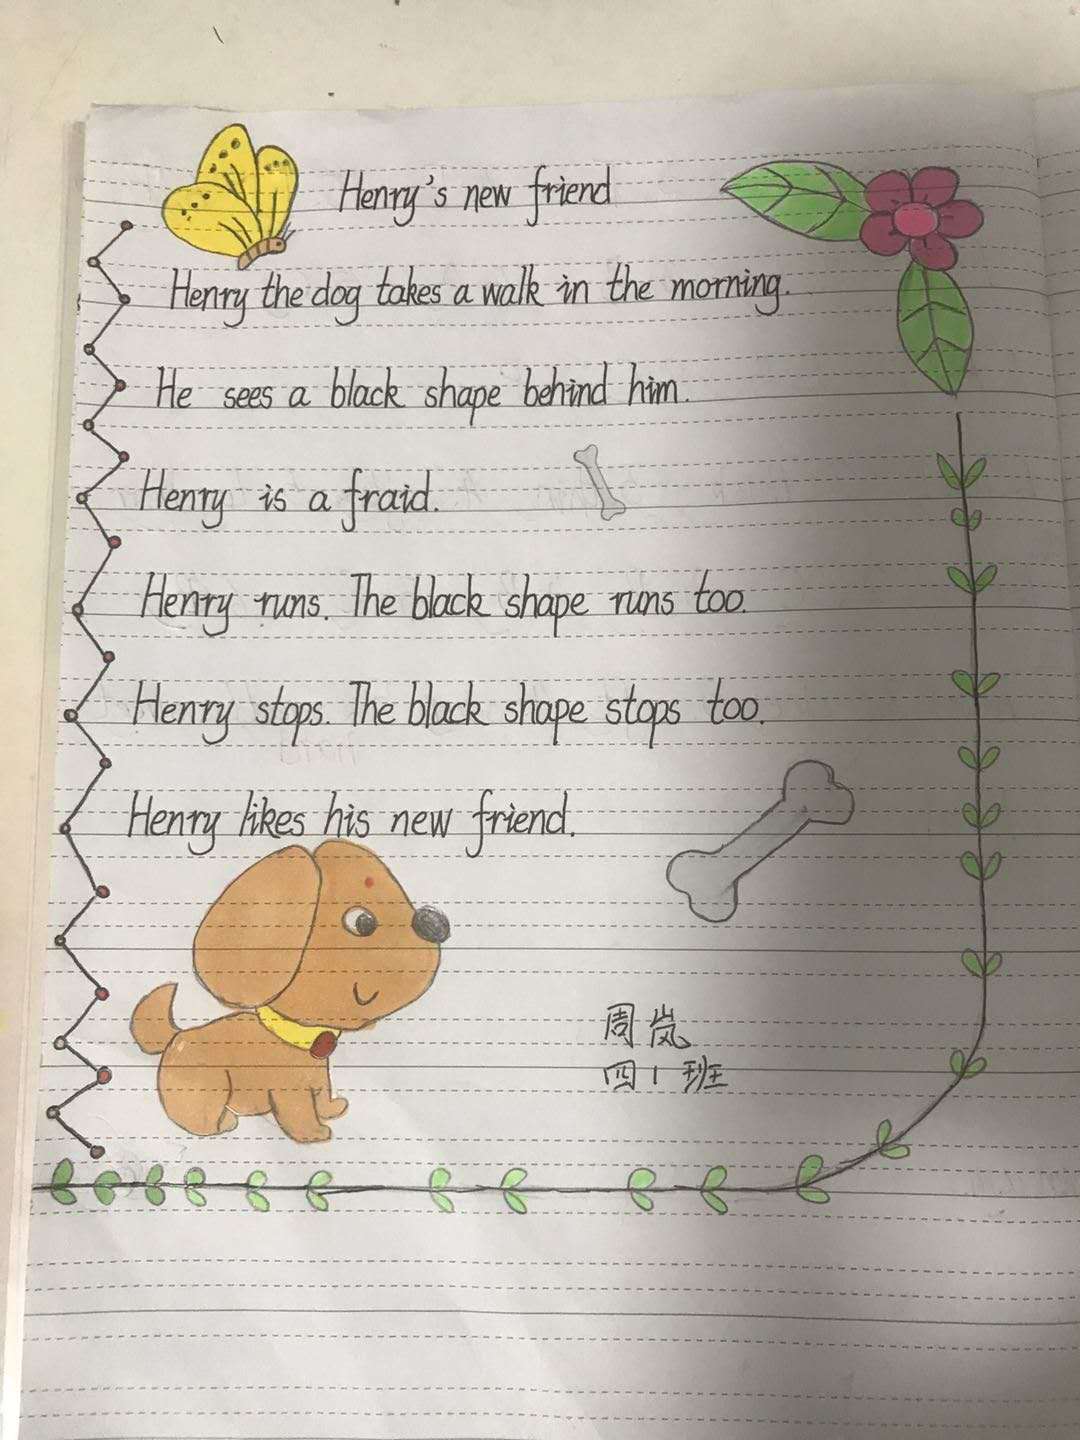 Henry's new friend
Henry the dog takes a walk in the morning.
He sees a black shape behind him.
Henry is a fraid.
Henry runs. The black shape runs too.
Henry stops. The black shape stops too.
Henry likes his new friend.
周岚
四1班